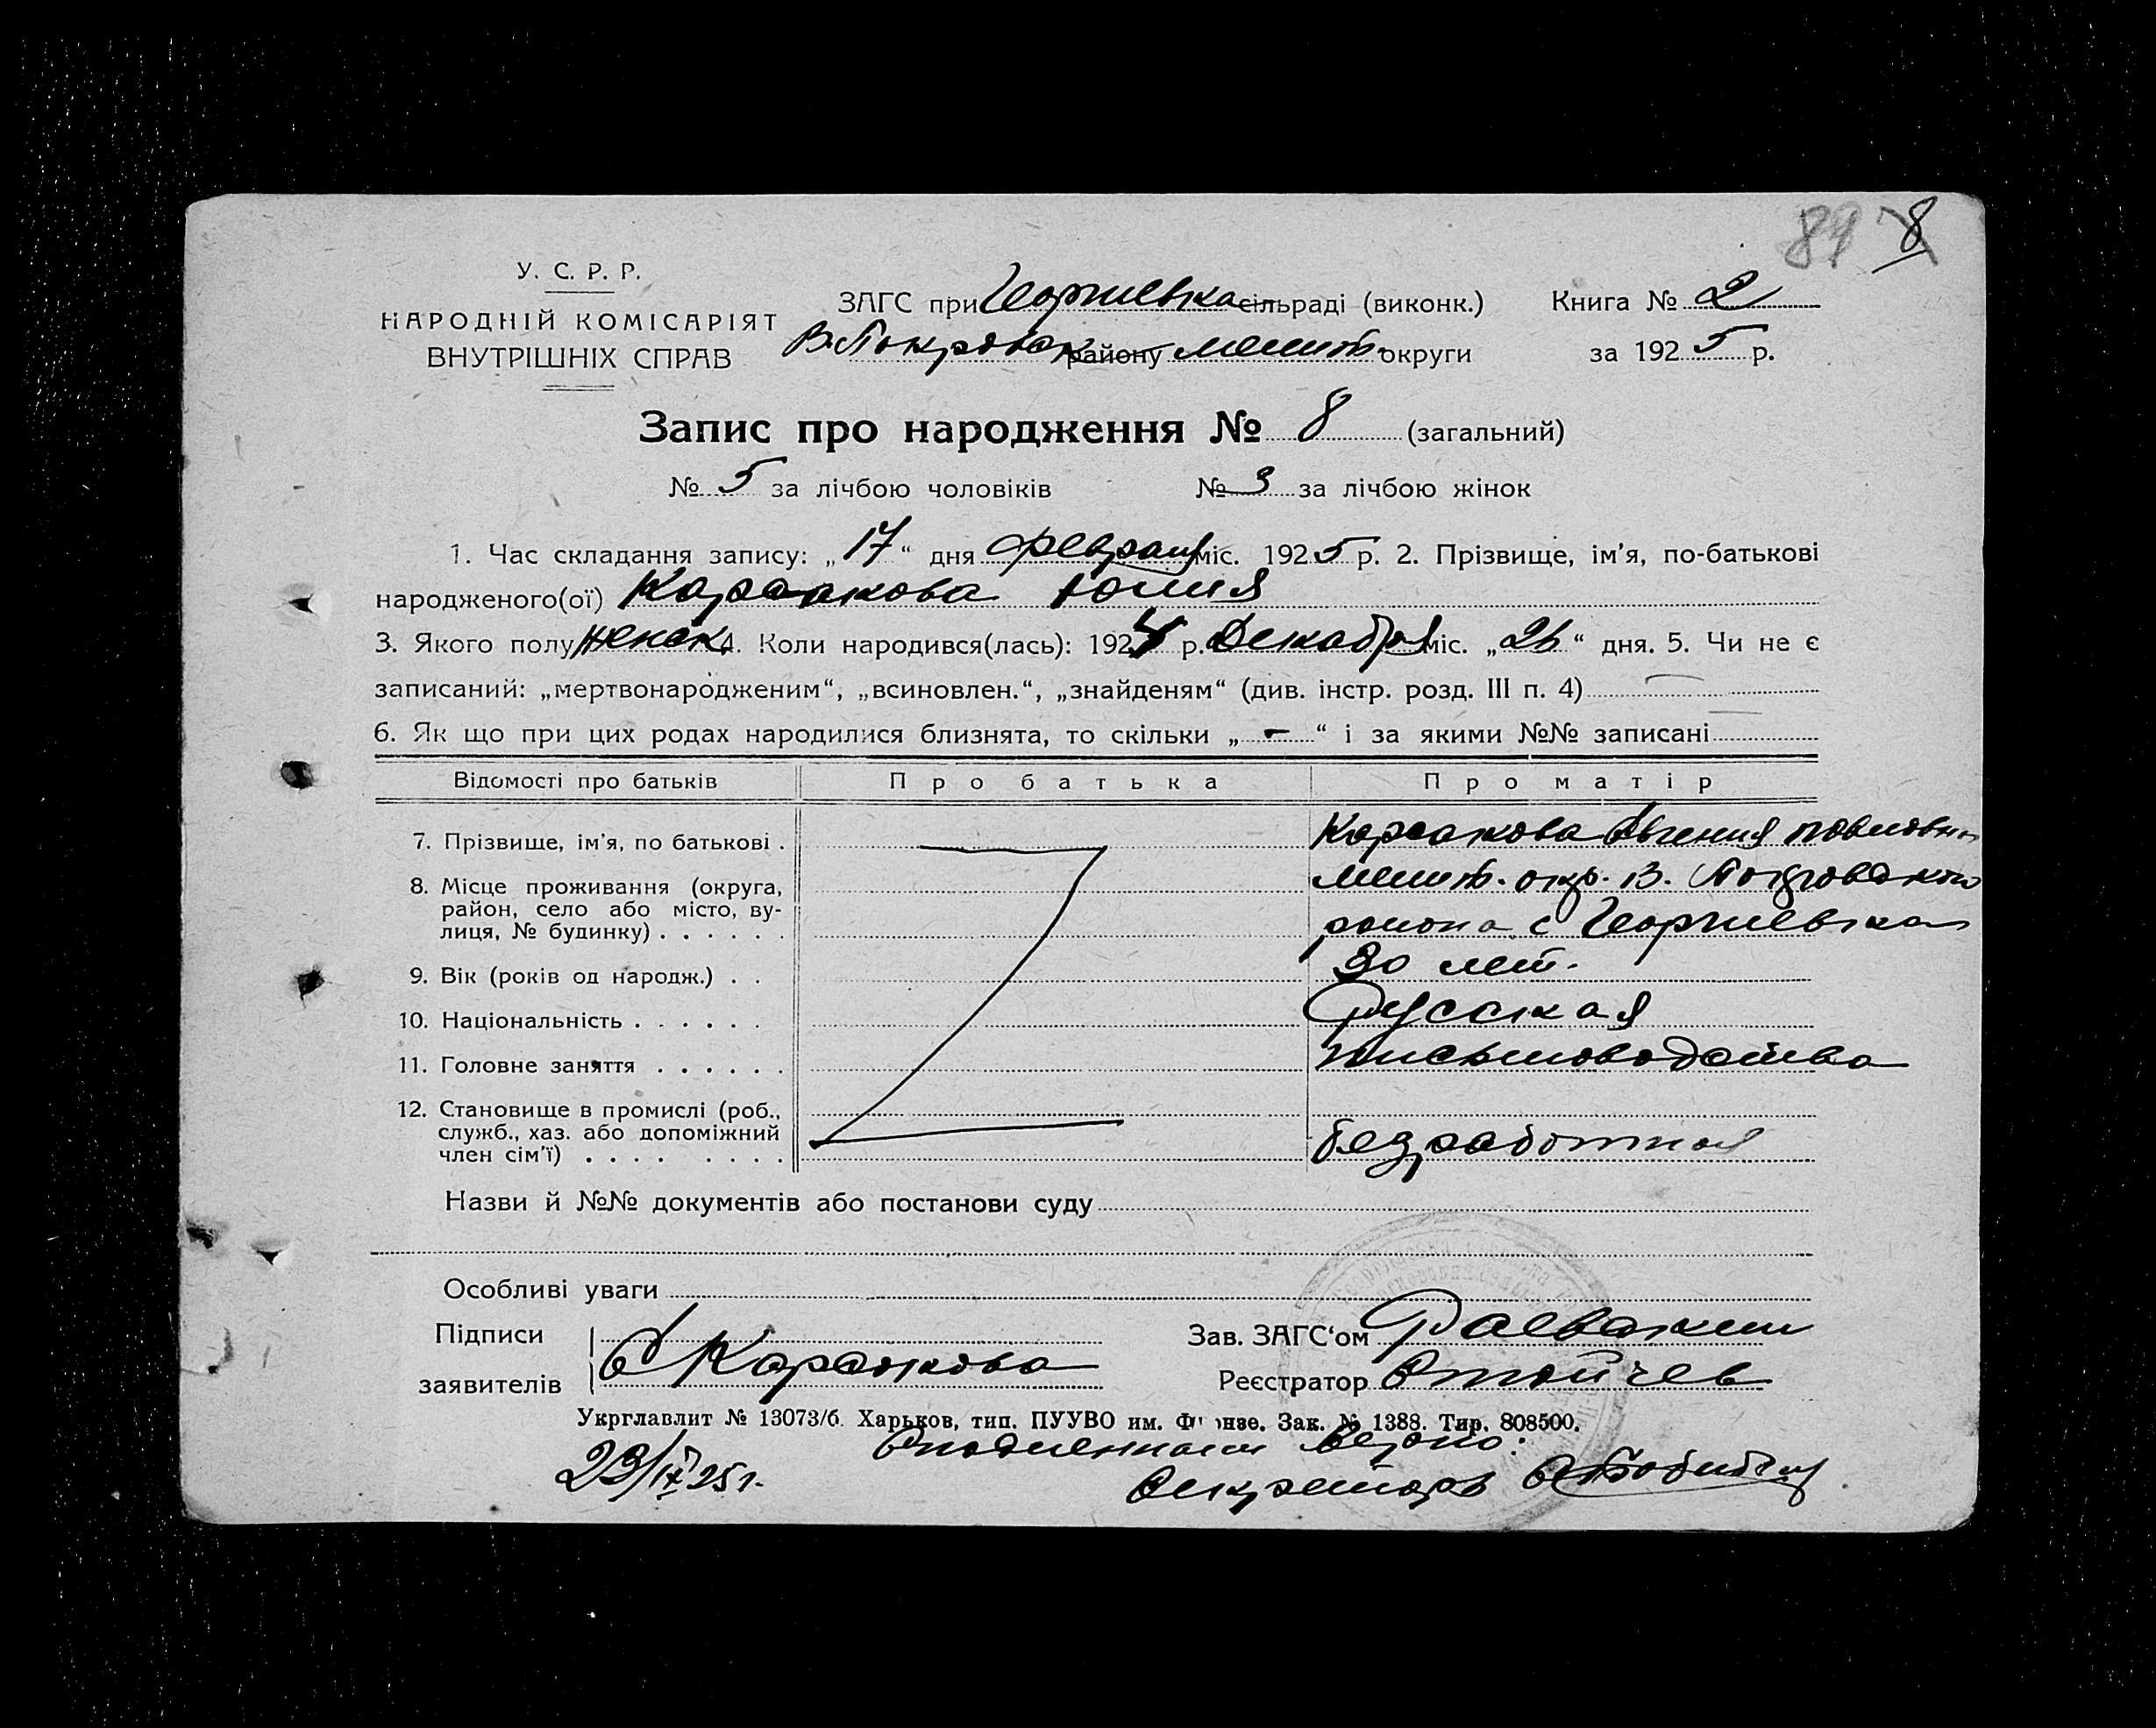 84 8
У. С. Р. Р.
НАРОДНІЙ КОМІСАРІЯТ
ВНУТРІШНІХ СПРАВ
ЗАГС при Георгиевка сільраді (виконк.)
В. Покровск району мелит. округи
Книга № 2
за 1925 р.
Запис про народження № 8 (загальний)
№ 5 за лічбою чоловіків № 3 за лічбою жінок
1. Час складання запису: „17“ дня февраля міс. 1925 р. 2. Прізвище, ім'я, по-батькові
народженого(ої) Карсакова Юлия
3. Якого полу женск. 4. Коли народився(лась): 1924 р. Декабря міс. „26“ дня. 5. Чи не є
записаний: „мертвонародженим“, „всиновлен.“, „знайденям“ (див. інстр. розд. III п. 4)
6. Як що при цих родах народилися близнята, то скільки „-“ і за якими №№ записані
Відомості про батьків Про батька Про матір
7. Прізвище, ім'я, по батькові . Карсакова Евгения Павловна
8. Місце проживання (округа, мелит. окр. В. Покровского
район, село або місто, ву-
лиця, № будинку) . . . . . . района с Георгиевка
9. Вік (років од народж.) . . 30 лет.
10. Національність . . . . . . Русская
11. Головне заняття . . . . . . письмоводства
12. Становище в промислі (роб.,
служб., хаз. або допоміжний
член сім'ї) . . . . . . . . безработная
Назви й №№ документів або постанови суду
Особливі уваги
Підписи
заявителів Е Карсакова
Зав. ЗАГС'ом Раевский
Реєстратор Стойчев
Укрглавлит № 13073/б. Харьков, тип. ПУУВО им. Фрунзе. Зак. № 1388. Тир. 808500.
С подлинным верно:
23/IX 25 г.
Секретарь